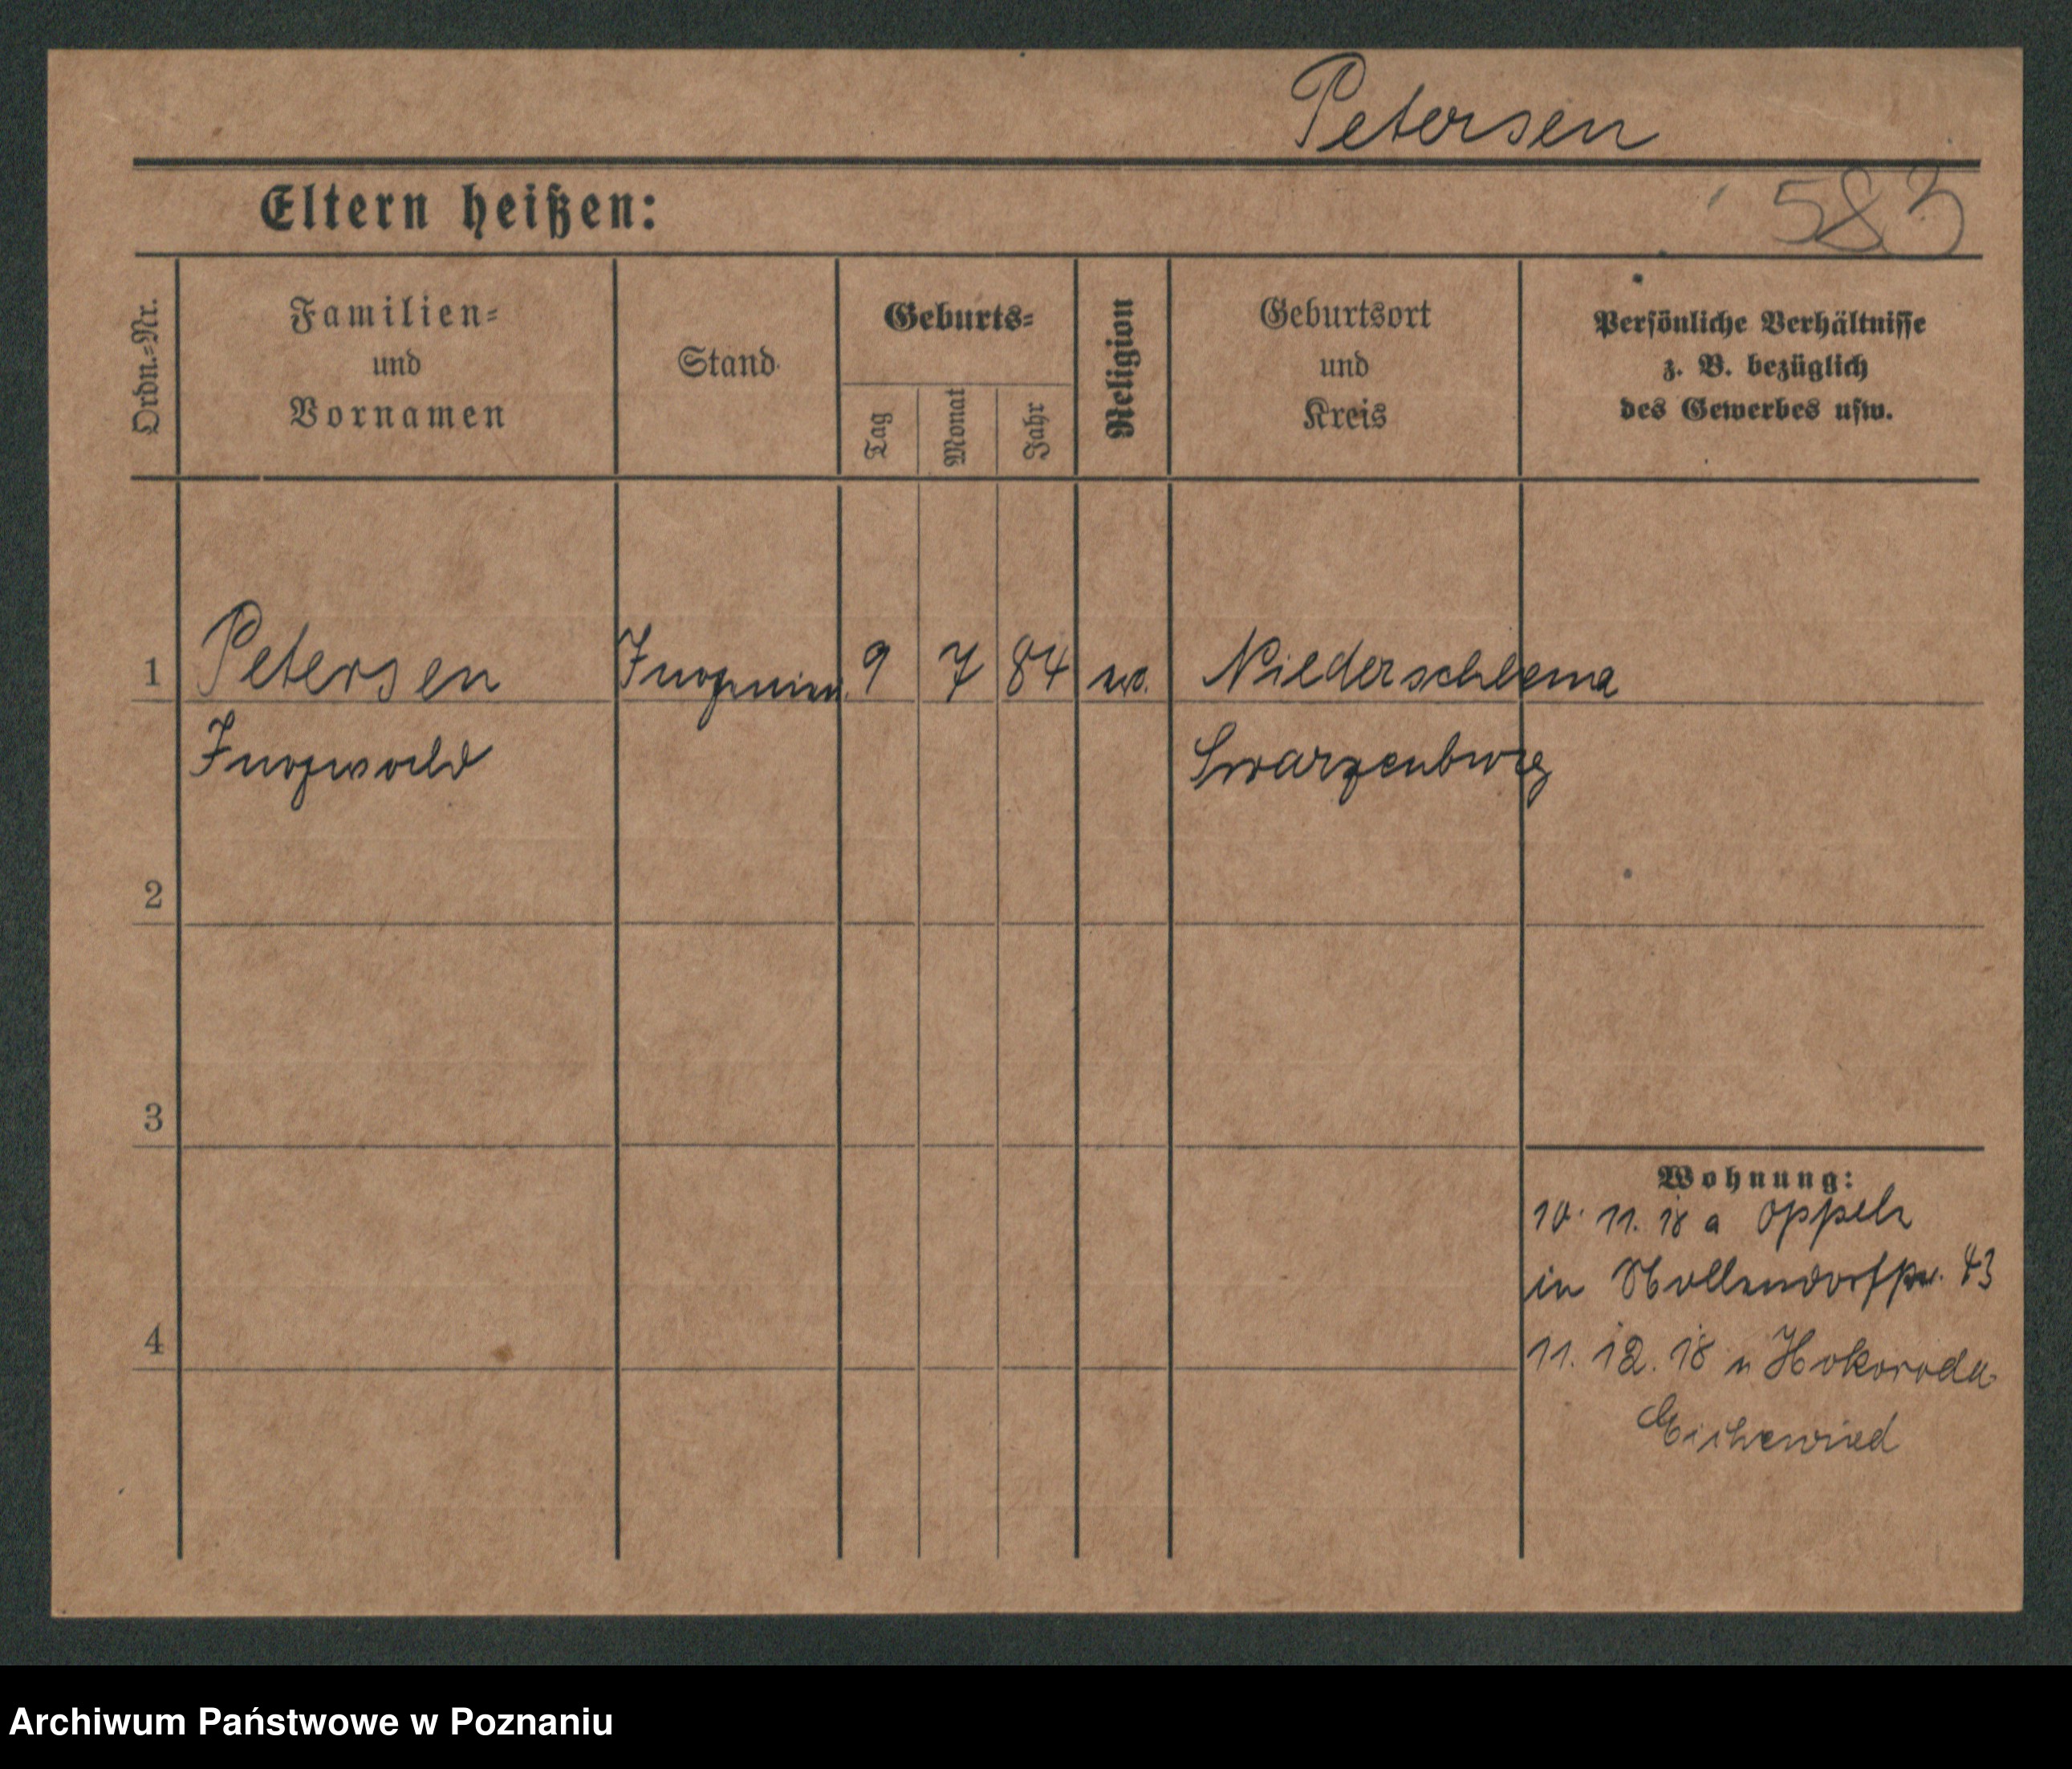 Petersen
Eltern heißen:
583
Ordn.-Nr.
Familien-
und
Vornamen
Stand
Geburts-
Tag
Monat
Jahr
Religion
Geburtsort
und
Kreis
Persönliche Verhältnisse
z. B. bezüglich
des Gewerbes usw.
1 Petersen 9 7 84 Niederschlema
Ingwald
2
3
4
Wohnung:
10. 11. 18 a Oppeln
in 43
11. 12. 18 n
Archiwum Państwowe w Poznaniu